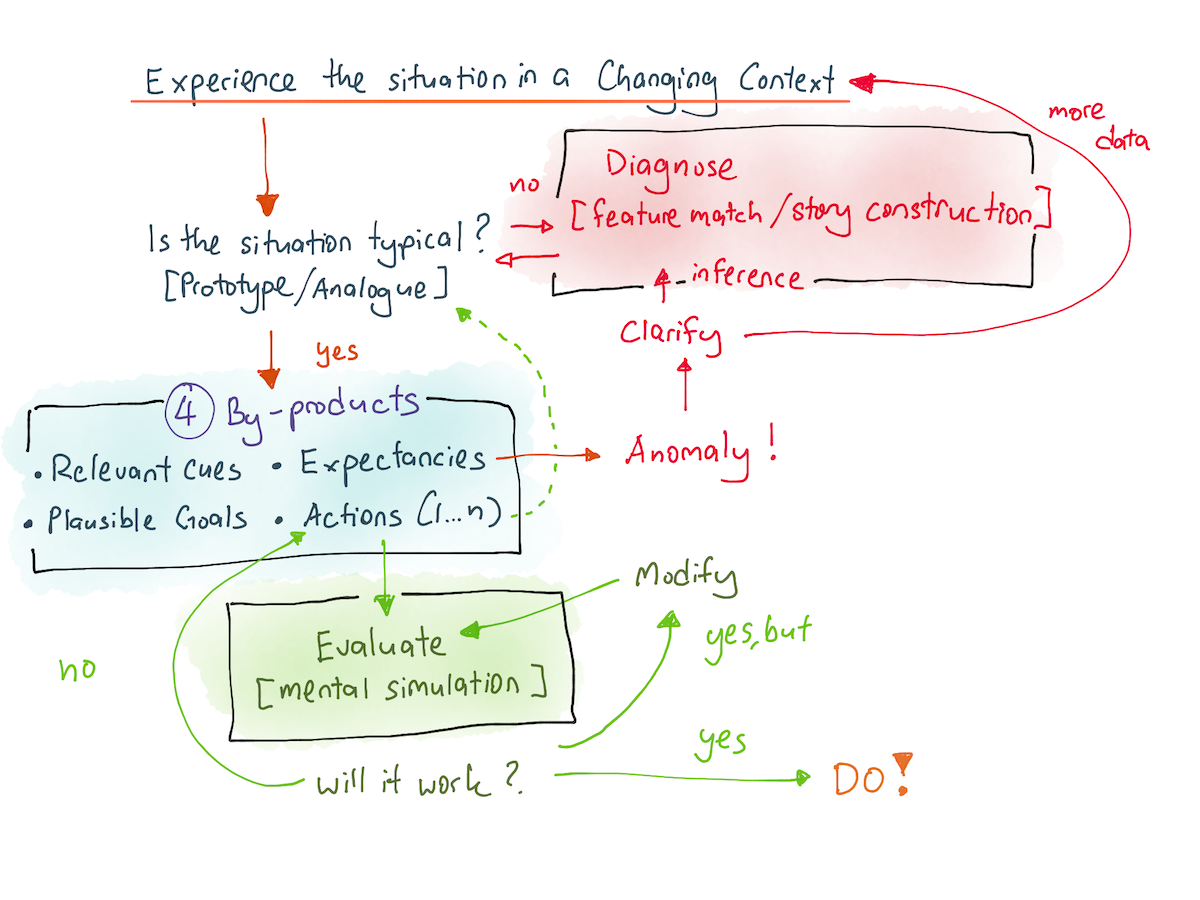 Experience the situation in a Changing Context
more
data
Diagnose
no
[feature match/story construction]
Is the situation typical?
[Prototype/Analogue]
inference
Clarify
yes
4 By-products
• Relevant cues • Expectancies
Anomaly!
• Plausible Goals • Actions (1...n)
Modify
yes, but
Evaluate
[mental simulation]
no
yes
will it work?
DO!